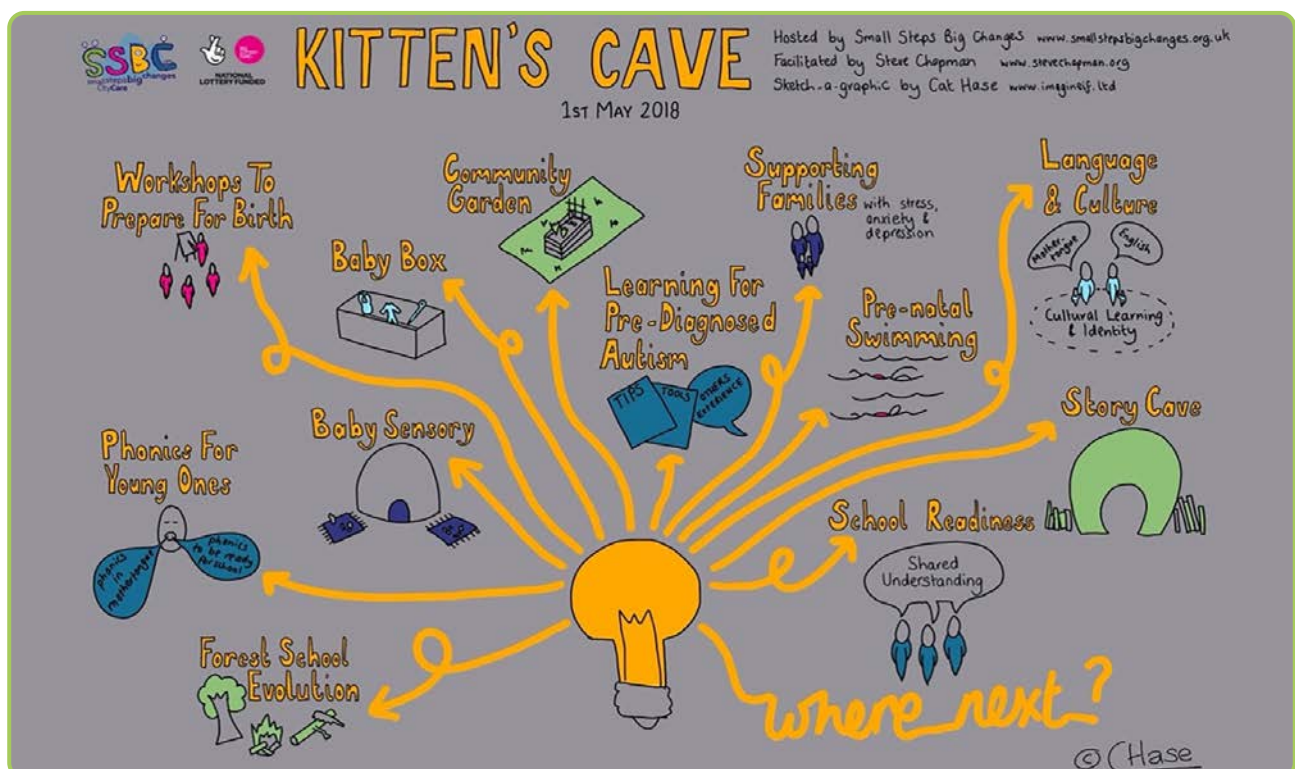 SSBC
smallstepsbigchanges
CityCare
NATIONAL
LOTTERY FUNDED
KITTEN'S CAVE
1ST MAY 2018
Hosted by Small Steps Big Changes www.smallstepsbigchanges.org.uk
Facilitated by Steve Chapman www.stevechapman.org
Sketch-a-graphic by Cat Hase www.imagineif.ltd
Workshops To
Prepare For Birth
Baby Box
Community
Garden
Learning For
Pre-Diagnosed
Autism
TIPS
TOOLS
OTHERS
EXPERIENCE
Supporting
Families
with stress,
anxiety &
depression
Pre-natal
Swimming
Language
& Culture
Mother-
tongue
English
Cultural Learning
& Identity
Story Cave
Baby Sensory
Phonics For
Young Ones
phonics
in
mothertongue
phonics
to be ready
for school
School Readiness
Shared
Understanding
Forest School
Evolution
where next?
© CHase